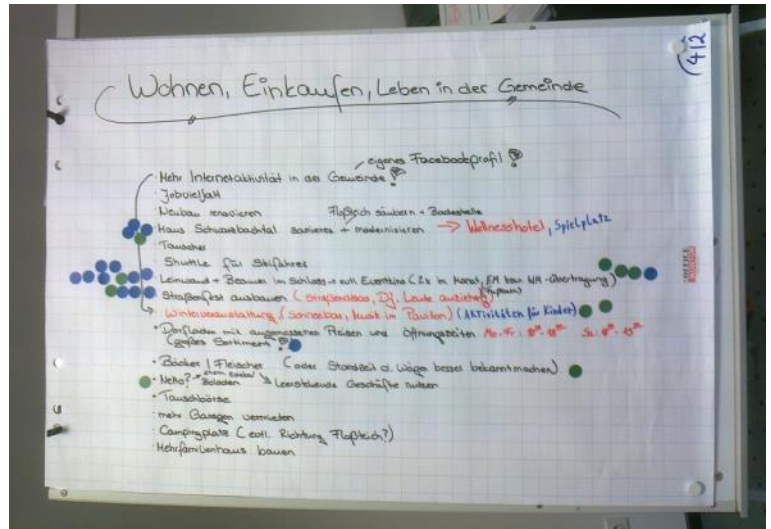 412
Wohnen, Einkaufen, Leben in der Gemeinde
eigenes Facebookprofil
Mehr Internetaktivität in der Gemeinde!
Jobvielfalt
Neubau renovieren Floßteich säubern + Badestelle
Haus Schwarzbachtal sanieren + modernisieren → Wellnesshotel, Spielplatz
Tauscher
Shuttle für Skifahrer
Leinwand + Beamer im Schloss → evtl. Eventkino (2x im Monat, EM bzw WM-Übertragung)
Straßenfest ausbauen (Straßendisco, DJ, Leute
Winterveranstaltung (Schneebar, Musik im Pavillon) (Aktivitäten für Kinder)
Dorfladen mit angemessenen Preisen und Öffnungszeiten Mo-Fr: Sa:
(großes Sortiment!)
Bäcker / Fleischer (oder Standzeit d. Wägen besser bekanntmachen)
Netto? → Bioladen
Leerstehende Geschäfte nutzen
Tauschbörse
mehr Garagen vermieten
Campingplatz (evtl. Richtung Floßteich?)
Mehrfamilienhaus bauen